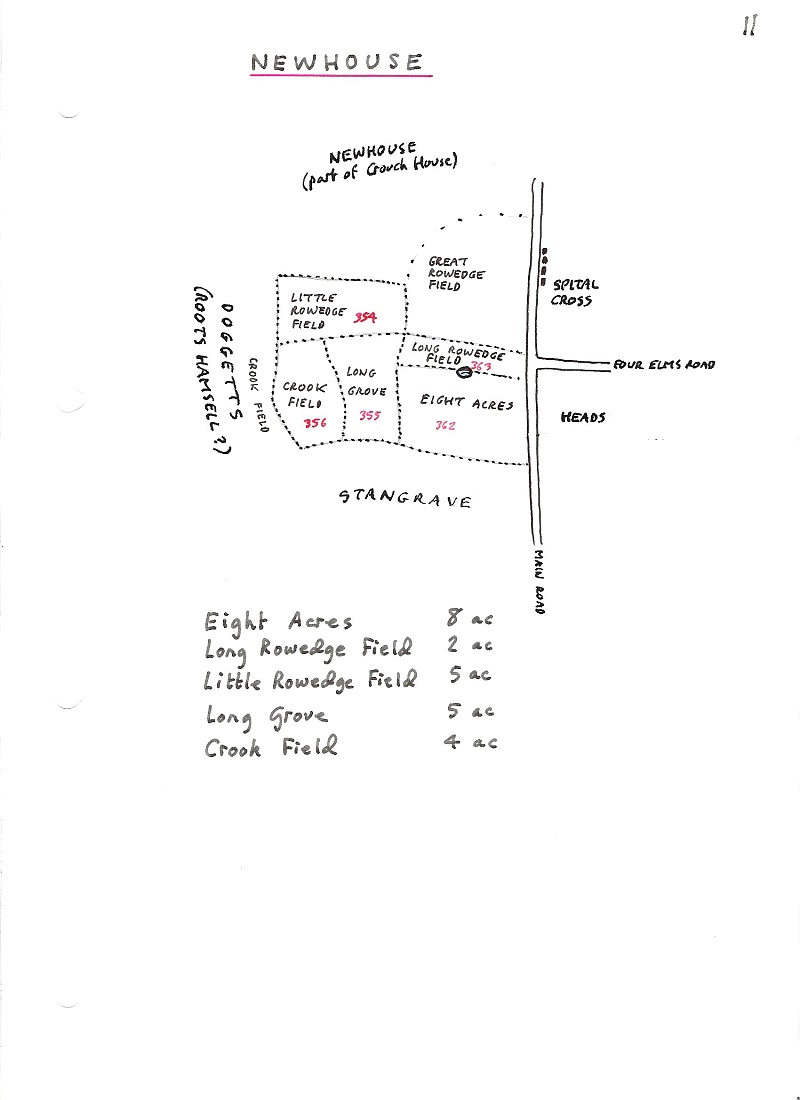 11
NEWHOUSE
NEWHOUSE
(part of Crouch House)
GREAT
ROWEDGE
FIELD
SPITAL
CROSS
LITTLE
ROWEDGE
FIELD 354
DOGGETTS
(ROOTS HAMSELL?)
CROOK FIELD
LONG ROWEDGE
FIELD 363
FOUR ELMS ROAD
LONG
GROVE
355
CROOK
FIELD
356
EIGHT ACRES
362
HEADS
STANGRAVE
MAIN ROAD
Eight Acres 8 ac
Long Rowedge Field 2 ac
Little Rowedge Field 5 ac
Long Grove 5 ac
Crook Field 4 ac